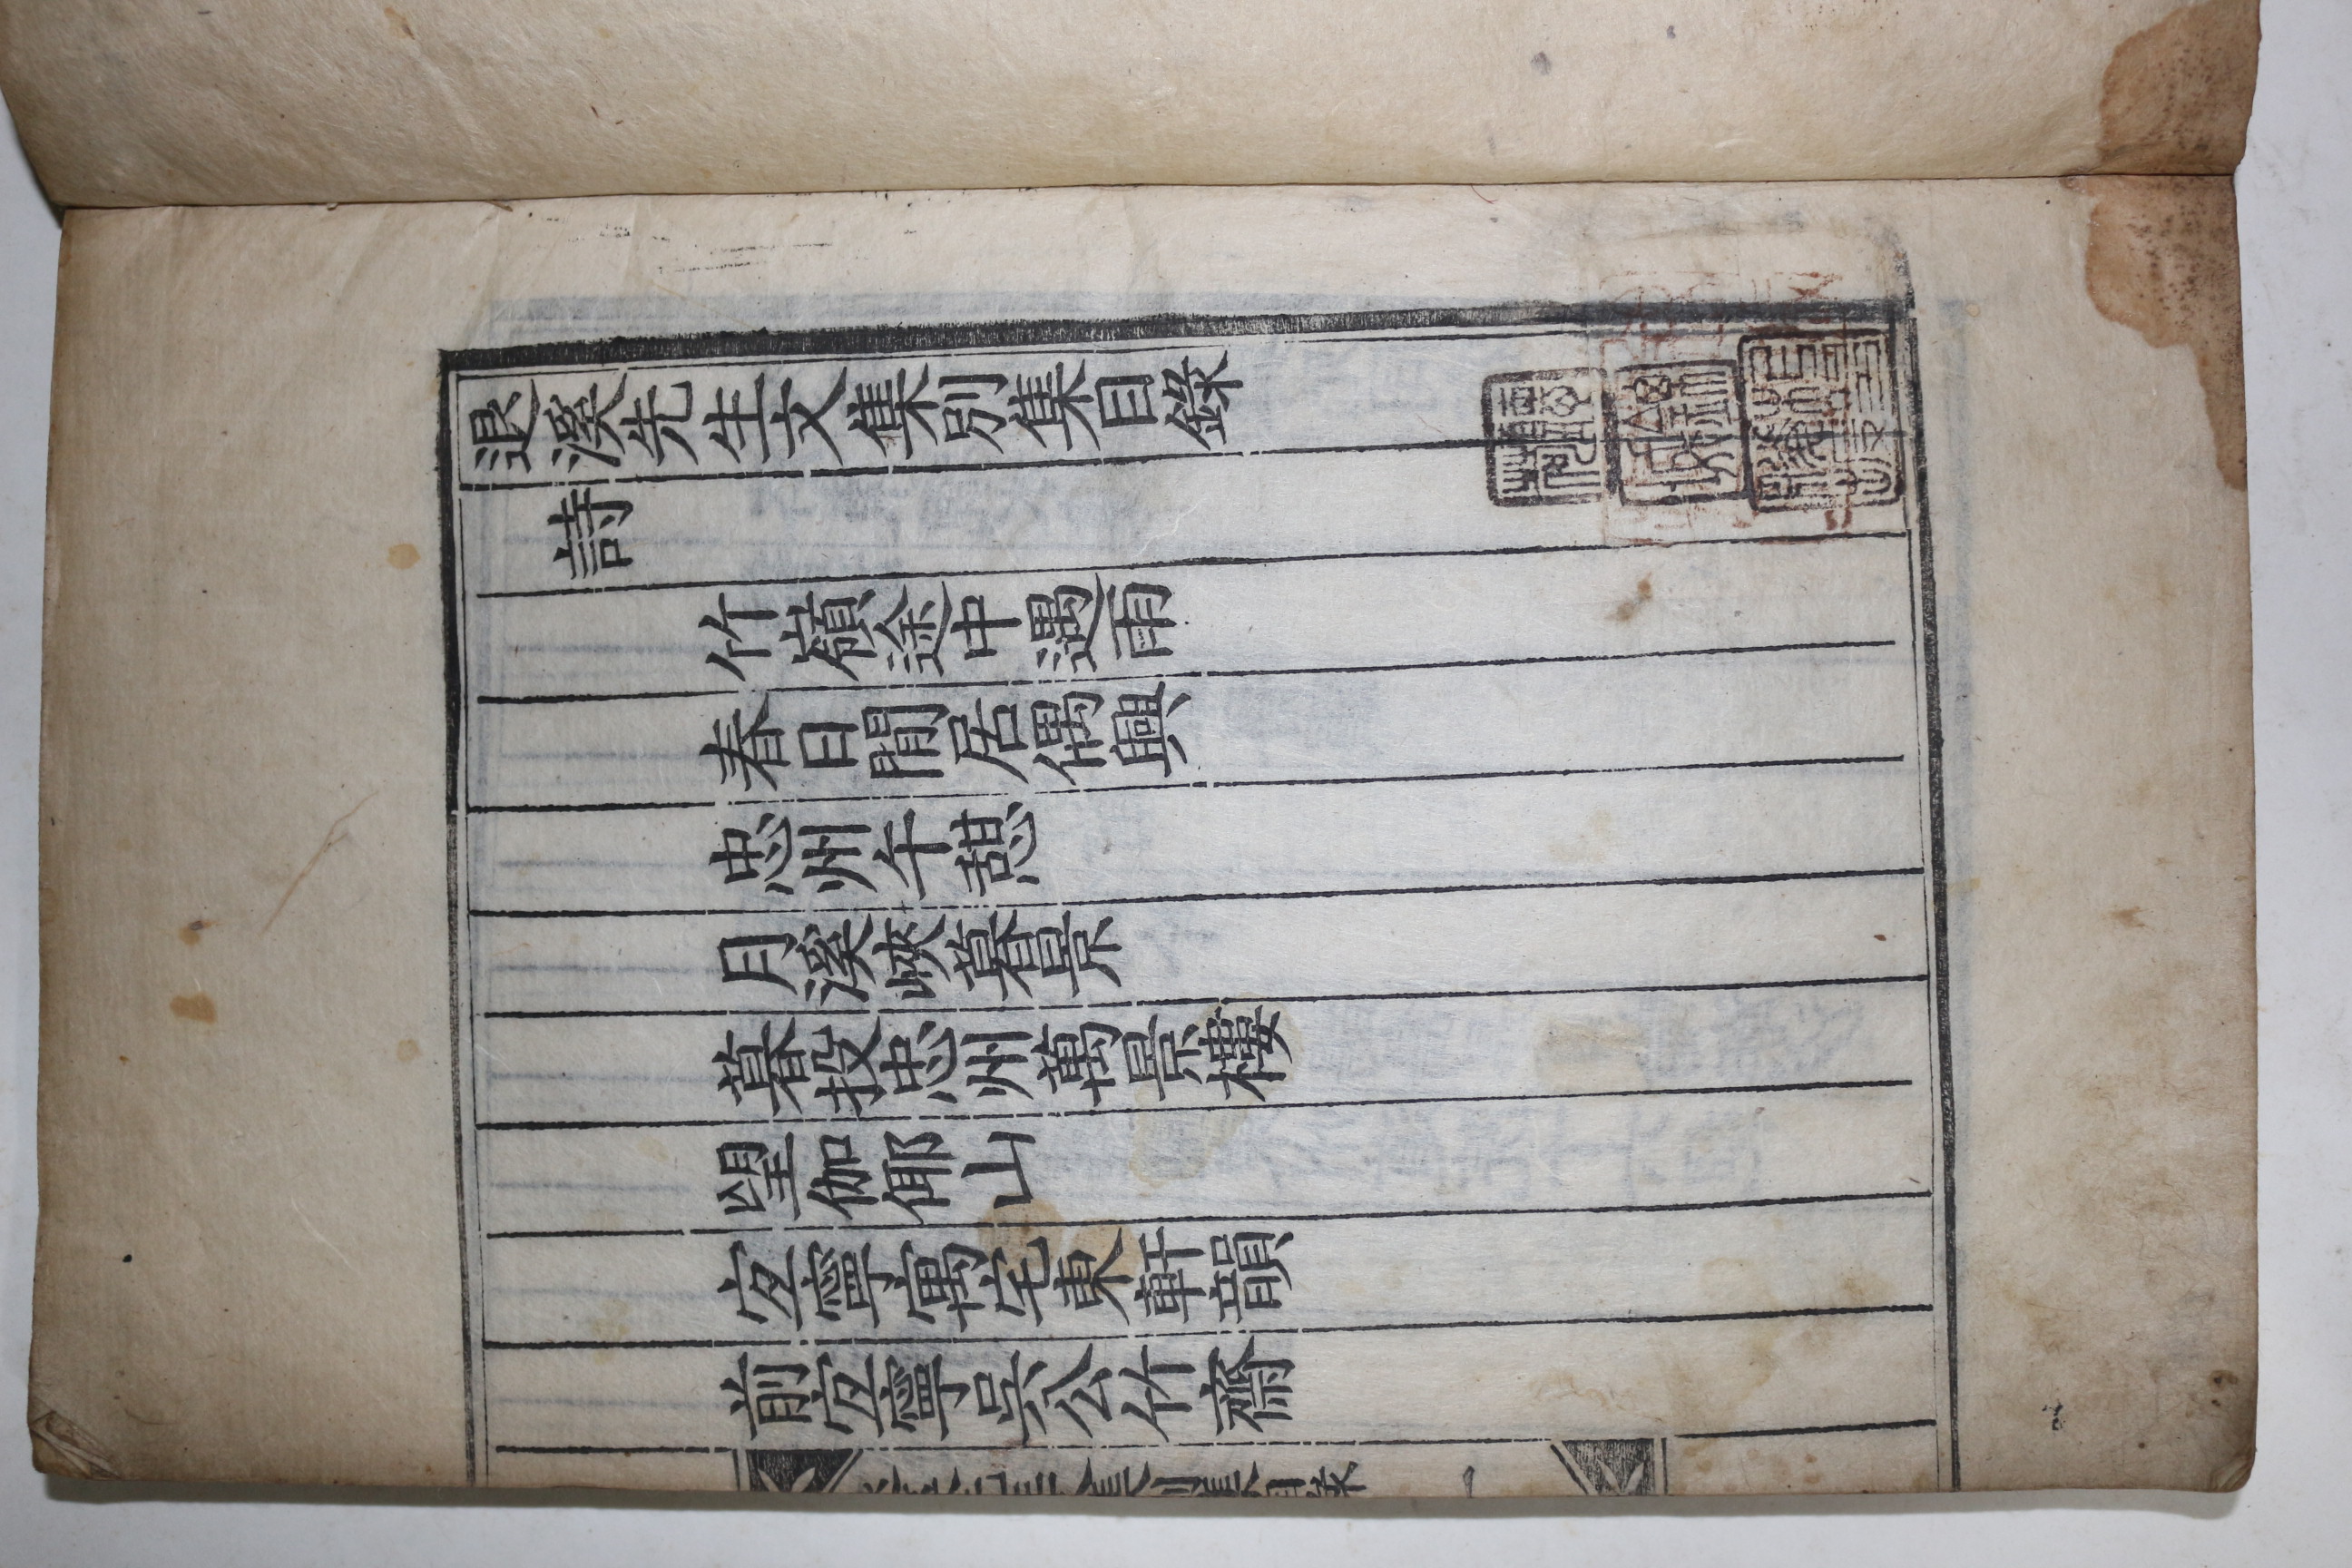 退溪先生文集別集目錄
詩
竹嶺途中遇雨
春日閒居偶興
忠州午憇
月溪峽暮景
暮投忠州萬景樓
望伽倻山
宜寧寓宅東軒韻
前宜寧吳公竹齋